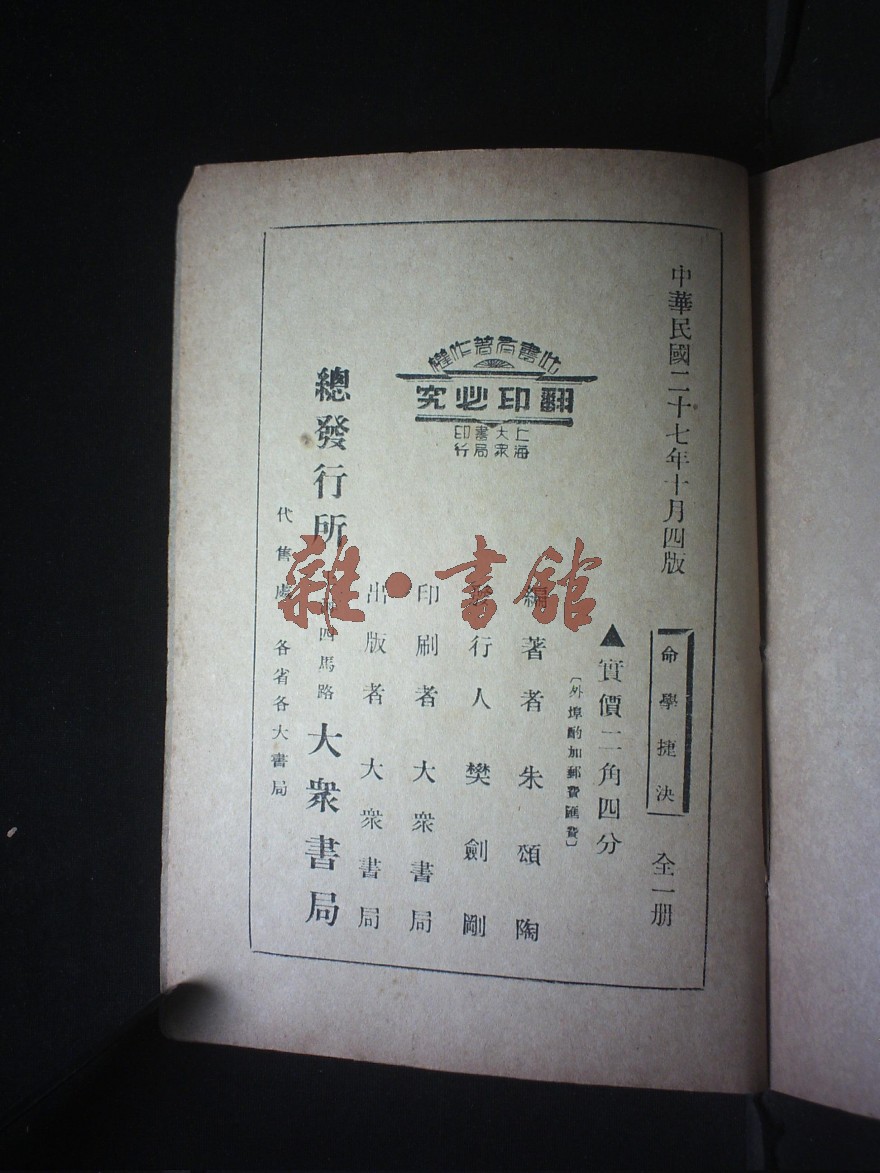 中華民國二十七年十月四版
命學捷決
全一册
▲實價二角四分
〔外埠酌加郵費匯費〕
此書有著作權
翻印必究
上海
大眾
書局
印行
編著者 朱頌陶
行人 樊劍剛
印刷者 大眾書局
出版者 大眾書局
總發行所 四馬路 大眾書局
代售處 各省各大書局
雜·書館